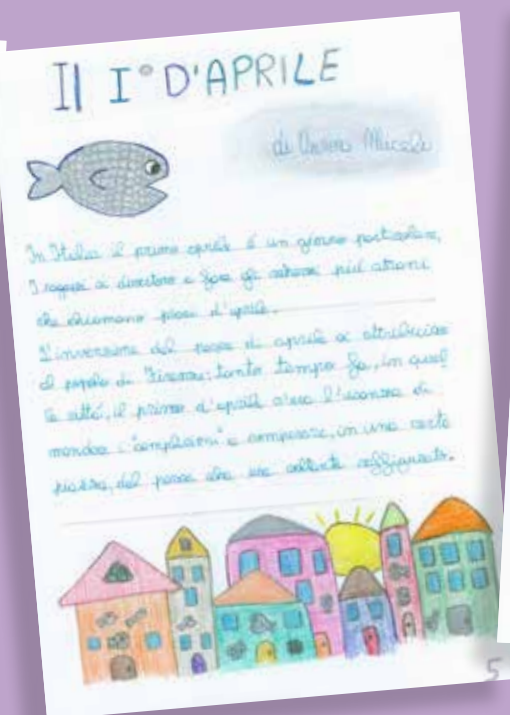 Il I° D'APRILE
di
In Italia il primo aprile è un giorno particolare,
I ragazzi si divertono a fare gli scherzi più strani
che chiamano pesci d'aprile.
L'invenzione del pesce di aprile si attribuisce
al popolo di Firenze: tanto tempo fa, in quel
la città, il primo d'aprile c'era l'usanza di
mandare i "semplicioni" a comperare, in una certa
piazza, del pesce che era soltanto raffigurato.
5